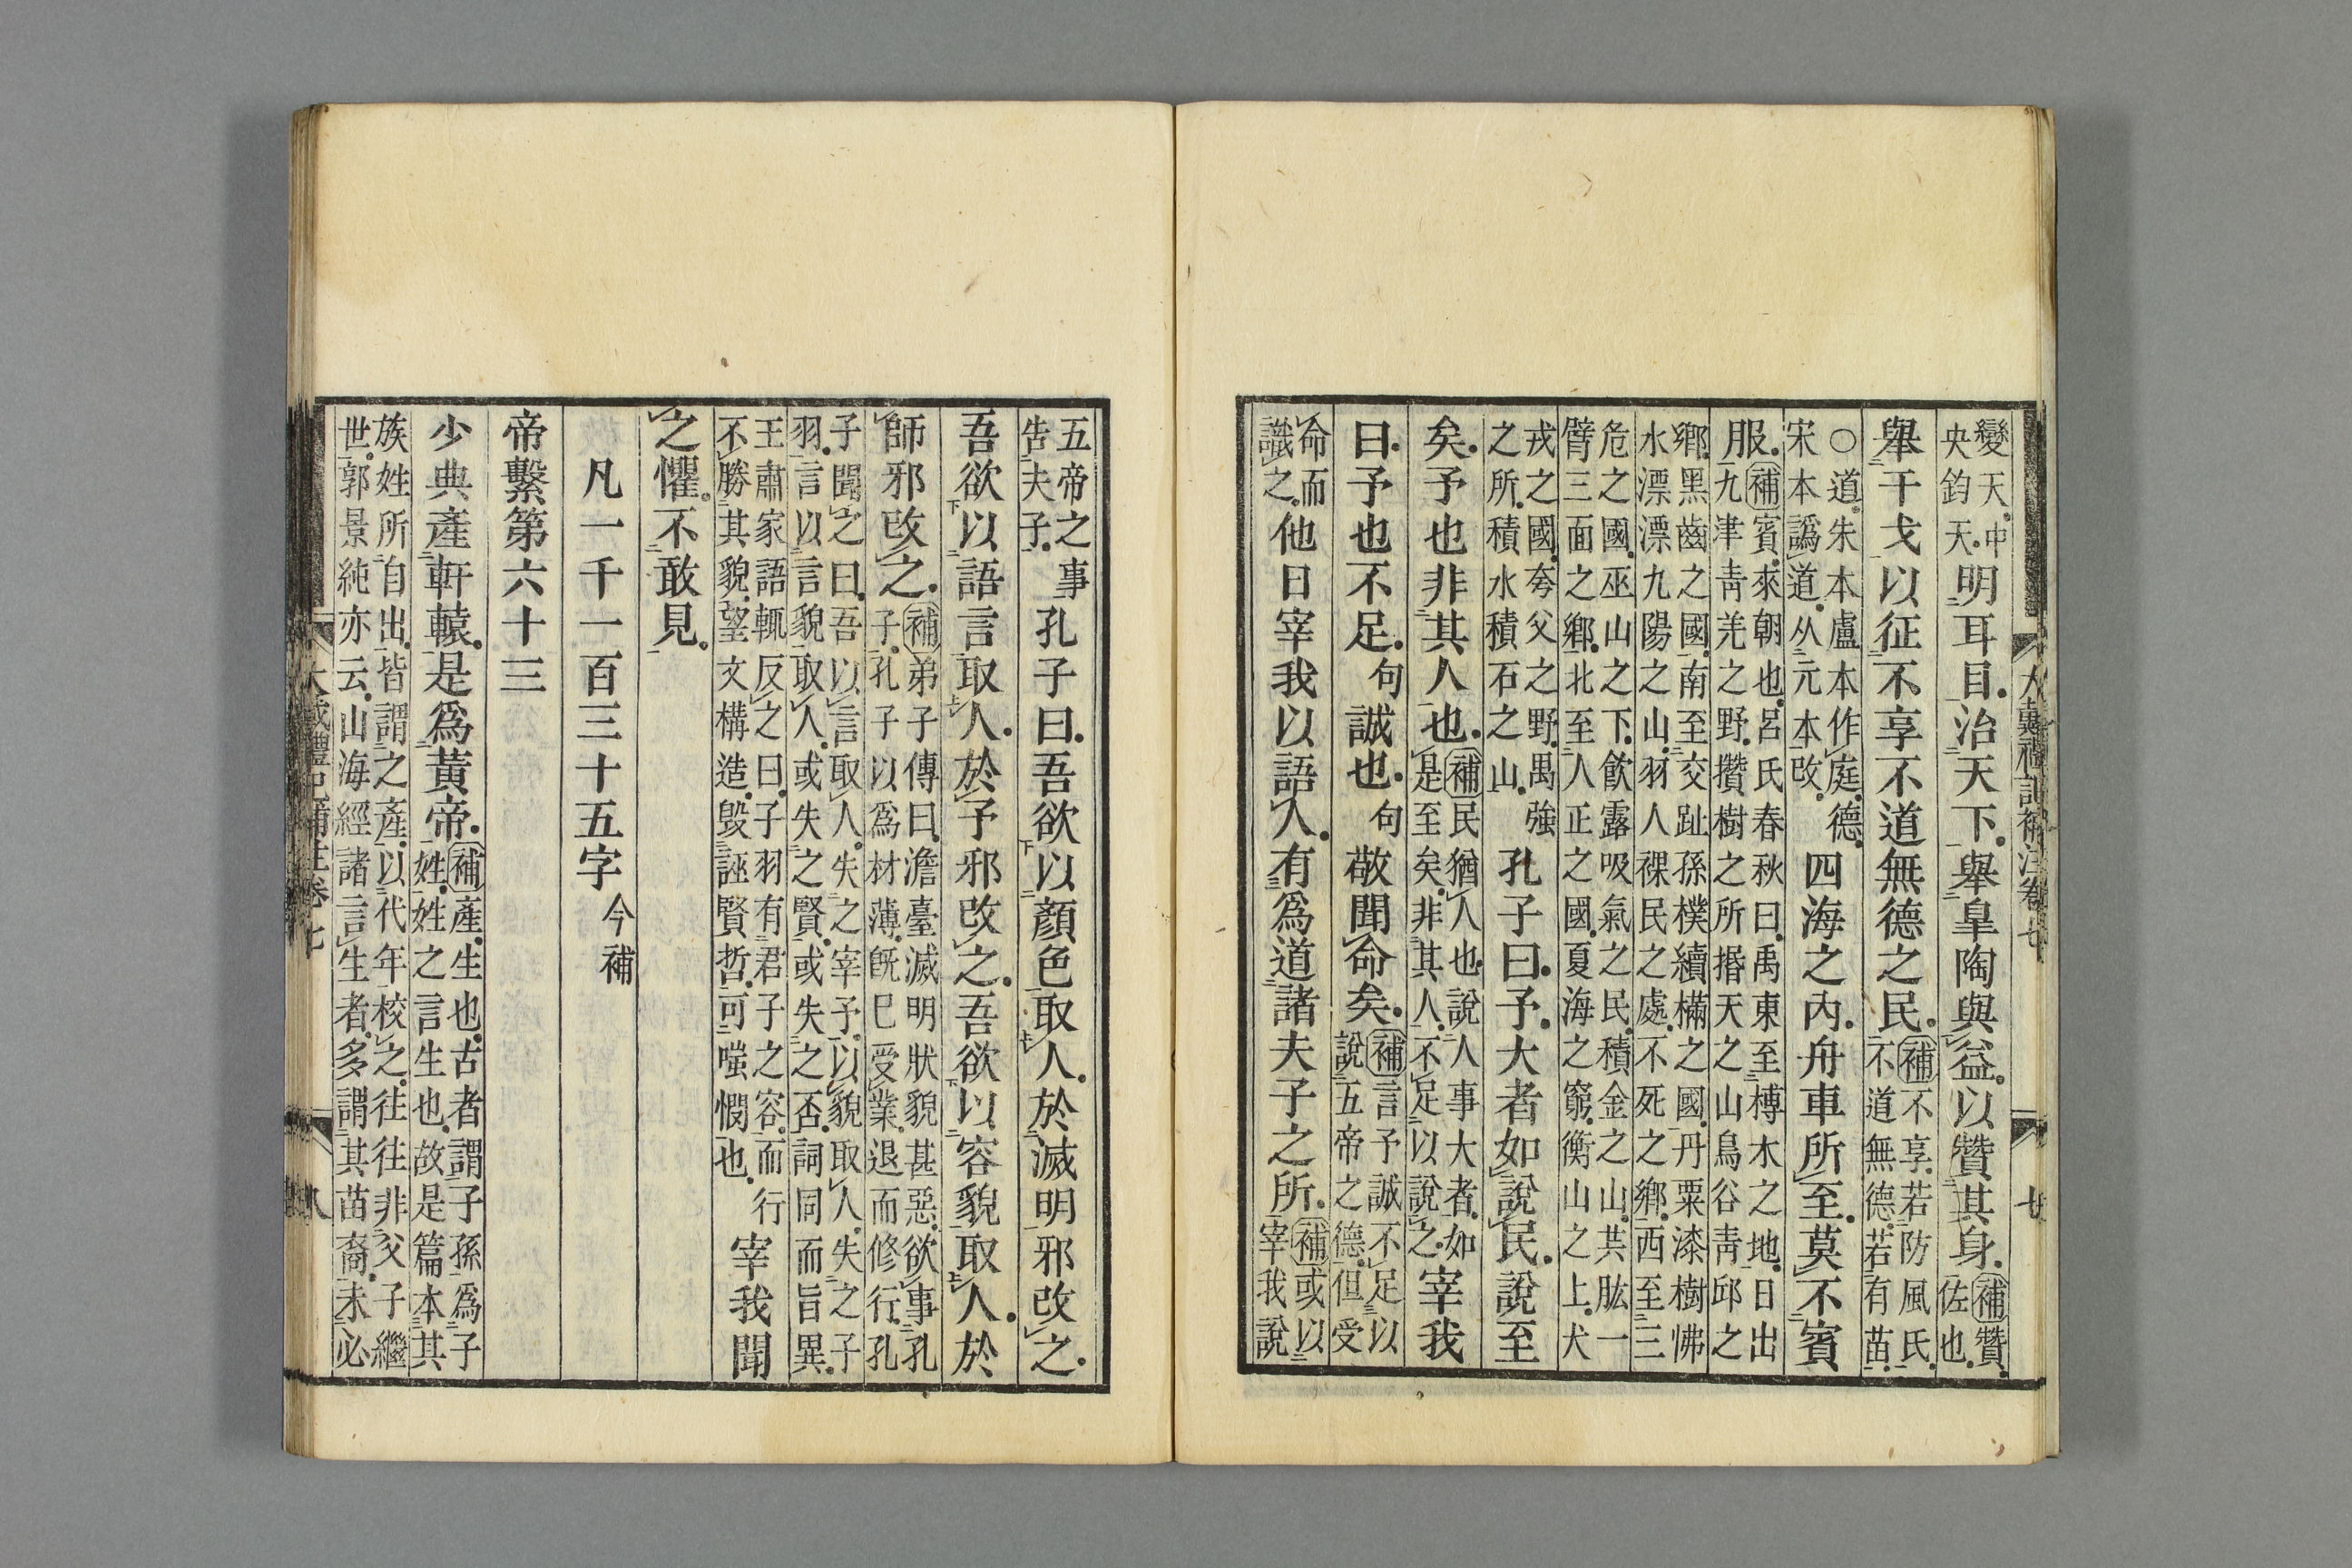 大戴禮記補注卷七　廿
變天中央鈞天明耳目治天下舉皐陶與益以贊其身補贊佐也
舉干戈以征不享不道無德之民補不享若防風氏不道無德若有苗
○道朱本盧本作庭德宋本譌道从元本改四海之內舟車所至莫不賓
服補賓來朝也呂氏春秋曰禹東至榑木之地日出九津靑羌之野攢樹之所㨉天之山鳥谷靑邱之
鄕黑齒之國南至交趾孫樸續樠之國丹粟漆樹怫水漂漂九陽之山羽人裸民之處不死之鄕西至三
危之國巫山之下飮露吸氣之民積金之山共肱一臂三面之鄕北至人正之國夏海之窮衡山之上犬
戎之國夸父之野禺強之所積水積石之山孔子曰予大者如說民說至
矣予也非其人也補民猶人也說人事大者如是至矣非其人不足以說之宰我
曰予也不足句誠也句敬聞命矣補言予誠不足以說五帝之德但受
命而識之他日宰我以語人有爲道諸夫子之所補或以宰我說
五帝之事告夫子孔子曰吾欲以顏色取人於滅明邪改之
吾欲以語言取人於予邪改之吾欲以容貌取人於
師邪改之補弟子傳曰澹臺滅明狀貌甚惡欲事孔子孔子以爲材薄旣巳受業退而修行孔
子聞之曰吾以言取人失之宰予以貌取人失之子羽言以言貌取人或失之賢或失之否詞同而旨異
王肅家語輒反之曰子羽有君子之容而行不勝其貌望文構造毀誣賢哲可嗤憫也宰我聞
之懼不敢見
凡一千一百三十五字今補
帝繫第六十三
少典產軒轅是爲黃帝補產生也古者謂子孫爲子姓姓之言生也故是篇本其
族姓所自出皆謂之產以代年校之往往非父子繼世郭景純亦云山海經諸言生者多謂其苗裔未必
大戴禮記補注卷七